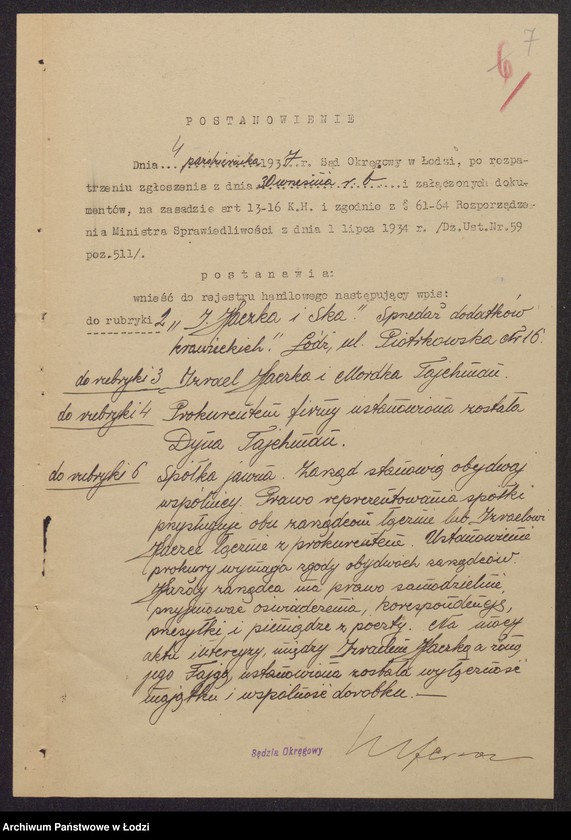 7
6/
POSTANOWIENIE
Dnia...4 października 1937 r. Sąd Okręgowy w Łodzi, po rozpa-
trzeniu zgłoszenia z dnia 30 września r. b. ....i załączonych doku-
mentów, na zasadzie art 13-16 K.H. i zgodnie z § 61-64 Rozporządze-
nia Ministra Sprawiedliwości z dnia 1 lipca 1934 r. /Dz.Ust.Nr.59
poz.511/.
postanawia:
wnieść do rejestru handlowego następujący wpis:
do rubryki 2 „I. Haczka i Ska." Sprzedaż dodatków
krawieckich." Łódź, ul. Piotrkowska № 16.
do rubryki 3 Izrael Haczka i Mordka Tajchman.
do rubryki 4 Prokurentem firmy ustanowiona została
Dyna Tajchman.
do rubryki 6 Spółka jawna. Zarząd stanowią obydwaj
wspólnicy. Prawo reprezentowania spółki
przysługuje obu zarządcom łącznie lub Izraelowi
Haczce łącznie z prokurentem. Ustanowienie
prokury wymaga zgody obydwóch zarządców.
Każdy zarządca ma prawo samodzielnie
przyjmować oświadczenia, korespondencję,
przesyłki i pieniądze z poczty. Na mocy
aktu intercyzy, między Izraelem Haczką a żoną
jego Fajgą, ustanowiona została wyłączność
majątku i wspólność dorobku. —
Sędzia Okręgowy
Archiwum Państwowe w Łodzi